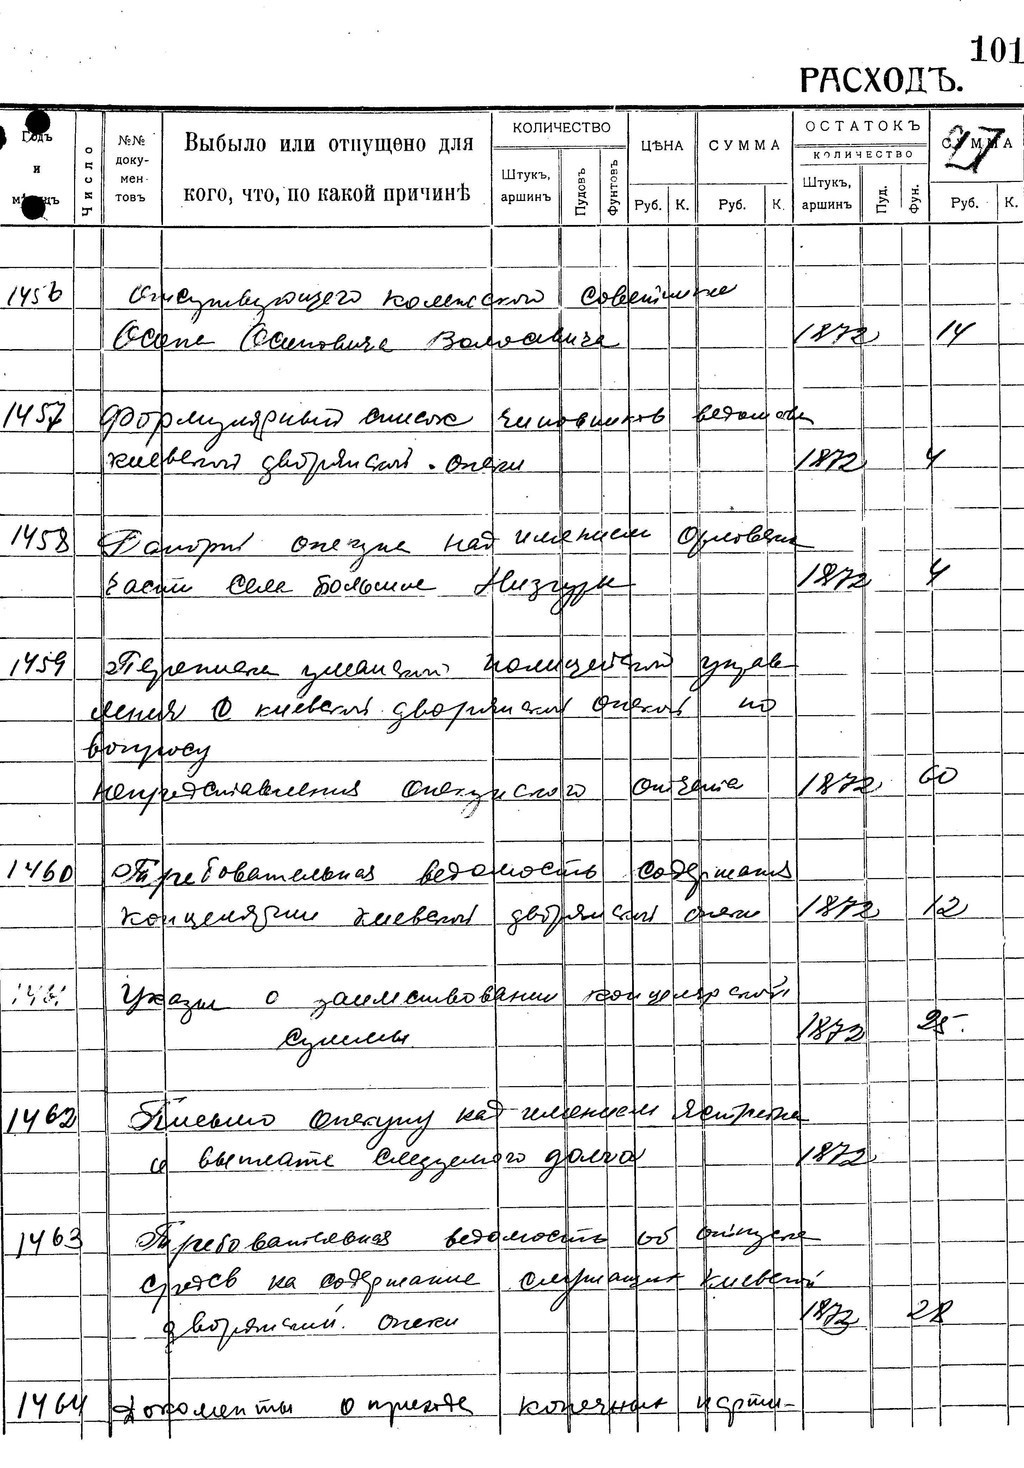 101
РАСХОДЪ.
27
Годъ и мѣсяцъ
Число
№№ доку-мен-товъ
Выбыло или отпущено для кого, что, по какой причинѣ
КОЛИЧЕСТВО
Штукъ, аршинъ
Пудовъ
Фунтовъ
ЦѢНА
Руб. К.
СУММА
Руб. К.
ОСТАТОКЪ
КОЛИЧЕСТВО
Штукъ, аршинъ
Пуд.
Фун.
СУММА
Руб. К.
1456 советника
Осипа Осиповича 1872 14
1457 Формулярный список чиновников ведомства
киевской дворянской опеки 1872 4
1458 Рапорт опекуна над имением
части села Большие Низгурцы 1872 4
1459 Переписка уманской полицейской управ
ления с киевской дворянской опекой по
вопросу
непредставления опекунского отчета 1872 60
1460 Требовательная ведомость содержания
канцелярии киевской дворянской опеки 1872 12
1461 Указы о заимствовании канцелярской
суммы 1872 25.
1462 Письмо опекуну над имением
о выплате следуемого долга 1872
1463 Требовательная ведомость об отпуске
средств на содержание служащих киевской
дворянской опеки 1872 28
1464 Документы о приходе